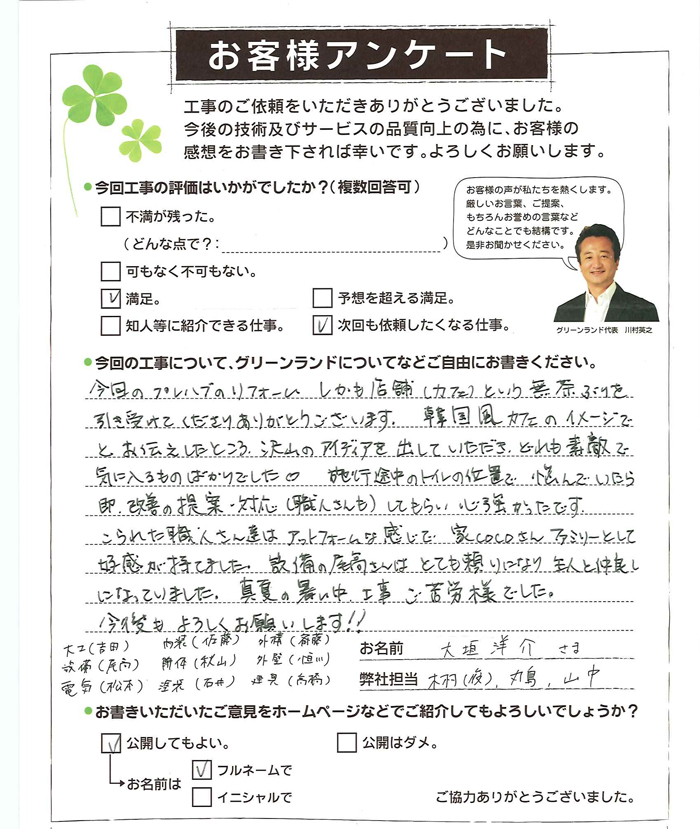 お客様アンケート
工事のご依頼をいただきありがとうございました。
今後の技術及びサービスの品質向上の為に、お客様の
感想をお書き下されば幸いです。よろしくお願いします。
●今回工事の評価はいかがでしたか?(複数回答可)
不満が残った。
(どんな点で?: )
可もなく不可もない。
満足。
予想を超える満足。
知人等に紹介できる仕事。
次回も依頼したくなる仕事。
お客様の声が私たちを熱くします。
厳しいお言葉、ご提案、
もちろんお誉めの言葉など
どんなことでも結構です。
是非お聞かせください。
グリーンランド代表 川村英之
●今回の工事について、グリーンランドについてなどご自由にお書きください。
今回のプレハブのリフォーム しかも店舗(カフェ)という無茶ぶりを
引き受けてくださりありがとうございます。 韓国風カフェのイメージで
と、お伝えしたところ、沢山のアイディアを出していただき、どれも素敵で
気に入るものばかりでした♡ 施行途中のトイレの位置で 悩んでいたら
即、改善の提案・対応(職人さんも)してもらい 心強かったです。
こられた職人さん達は アットフォームな感じで 家cocoさん ファミリーとして
好感が持てました。 設備の尾高さんは とても頼りになり 主人と仲良し
になっていました。 真夏の暑い中、工事 ご苦労様でした。
今後も よろしくお願いします!!
大工(吉田) 内装(佐藤) 外構(斎藤)
設備(尾高) 解体(秋山) 外壁(恒川)
電気(松本) 塗装(石井) 建具(高橋)
お名前 大垣洋介 さま
弊社担当 木村(俊)、丸島、山中
●お書きいただいたご意見をホームページなどでご紹介してもよろしいでしょうか?
公開してもよい。
公開はダメ。
お名前は
フルネームで
イニシャルで
ご協力ありがとうございました。